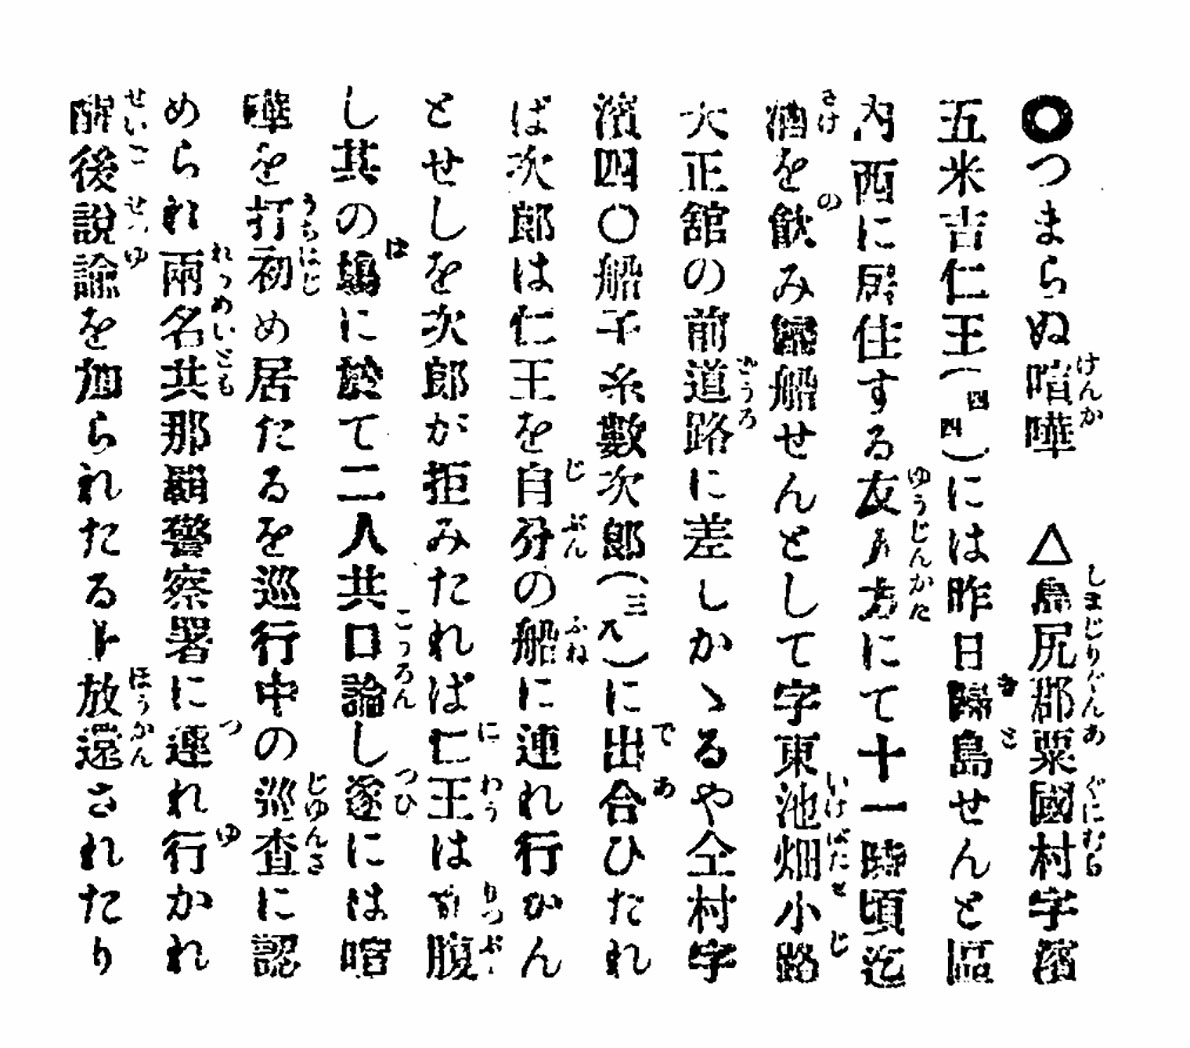 ○つまらぬ喧嘩　△島尻郡粟國村字濱
五米吉仁王(四四)には昨日歸島せんと區
内西に居住する友人方にて十一時頃迄
酒を飮み歸船せんとして字東池畑小路
大正舘の前道路に差しかゝるや仝村字
濱四〇船子糸數次郎(三八)に出合ひたれ
ば次郎は仁王を自分の船に連れ行かん
とせしを次郎が拒みたれば仁王は立腹
し其の場に於て二人共口論し遂には喧
嘩を打初め居たるを巡行中の巡査に認
められ兩名共那覇警察署に連れ行かれ
醒後說諭を加られたる上放還されたり